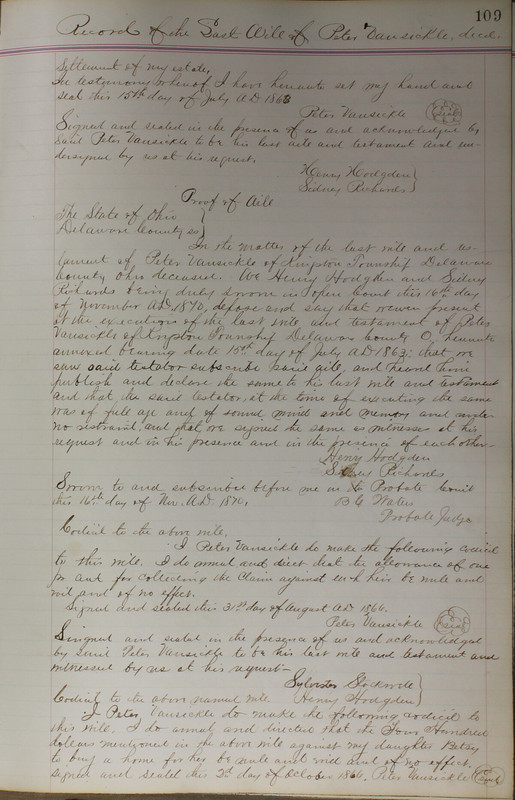 109
Record of the Last Will of Peter Vansickle, decd.
Settlement of my estate,
In testimony whereof I have hereunto set my hand and
seal this 15th day of July AD 1863
Peter Vansickle Seal
Signed and sealed in the presence of us and acknowledged by
said Peter Vansickle to be his last will and testament and un-
dersigned by us at his request.
Henry Hodgden
Sidney Richards
Proof of Will
The State of Ohio
Delaware County ss
In the matter of the last will and tes-
tament of Peter Vansickle of Kingston Township Delaware
County Ohio deceased. We Henry Hodgden and Sidney
Richards being duly sworn in open Court this 16th day
of November AD 1870, depose and say that we were present
at the execution of the last will and testament of Peter
Vansickle of Kingston Township Delaware County O, hereunto
annexed bearing date 15th day of July AD 1863; that we
saw said testator subscribe said will, and heard him
publish and declare the same to his last will and testament
and that the said testator, at the time of executing the same
was of full age and of sound mind and memory and under
no restraint, and that we signed the same as witnesses at his
request and in his presence and in the presence of each other-
Henry Hodgden
Sidney Richards
Sworn to and subscribed before me in Probate Court
this 16th day of Nov. A.D. 1870.
B C Waters
Probate Judge
Codicil to the above will.
I Peter Vansickle do make the following codicil
to this will. I do annul and direct that the allowance of one
for and for collecting the Claim against such heirs be null and
void and of no effect.
Signed and sealed this 31st day of August AD 1866.
Peter Vansickle Seal
Singned and sealed in the presence of us and acknowledged
by said Peter Vansickle to be his last will and testament and
witnessed by us at his request-
Sylvester Stockwell
Codicil to the above named will Henry Hodgden
I Peter Vansickle do make the following codicil to
this will. I do annul and directed that the Four Hundred
dollars mentioned in the above will against my daughter Betsy
to buy a home for her be null and void and of no effect.
Signed and sealed this 2d day of October 1866. Peter Vansickle Seal